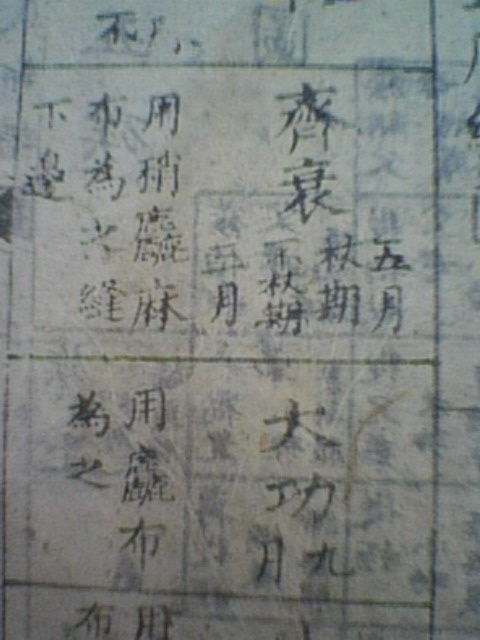 齊衰
五月
杖期
不杖期
三月
用稍麤麻
布為之縫
下邊
大功
九月
用麤布
為之
用
布